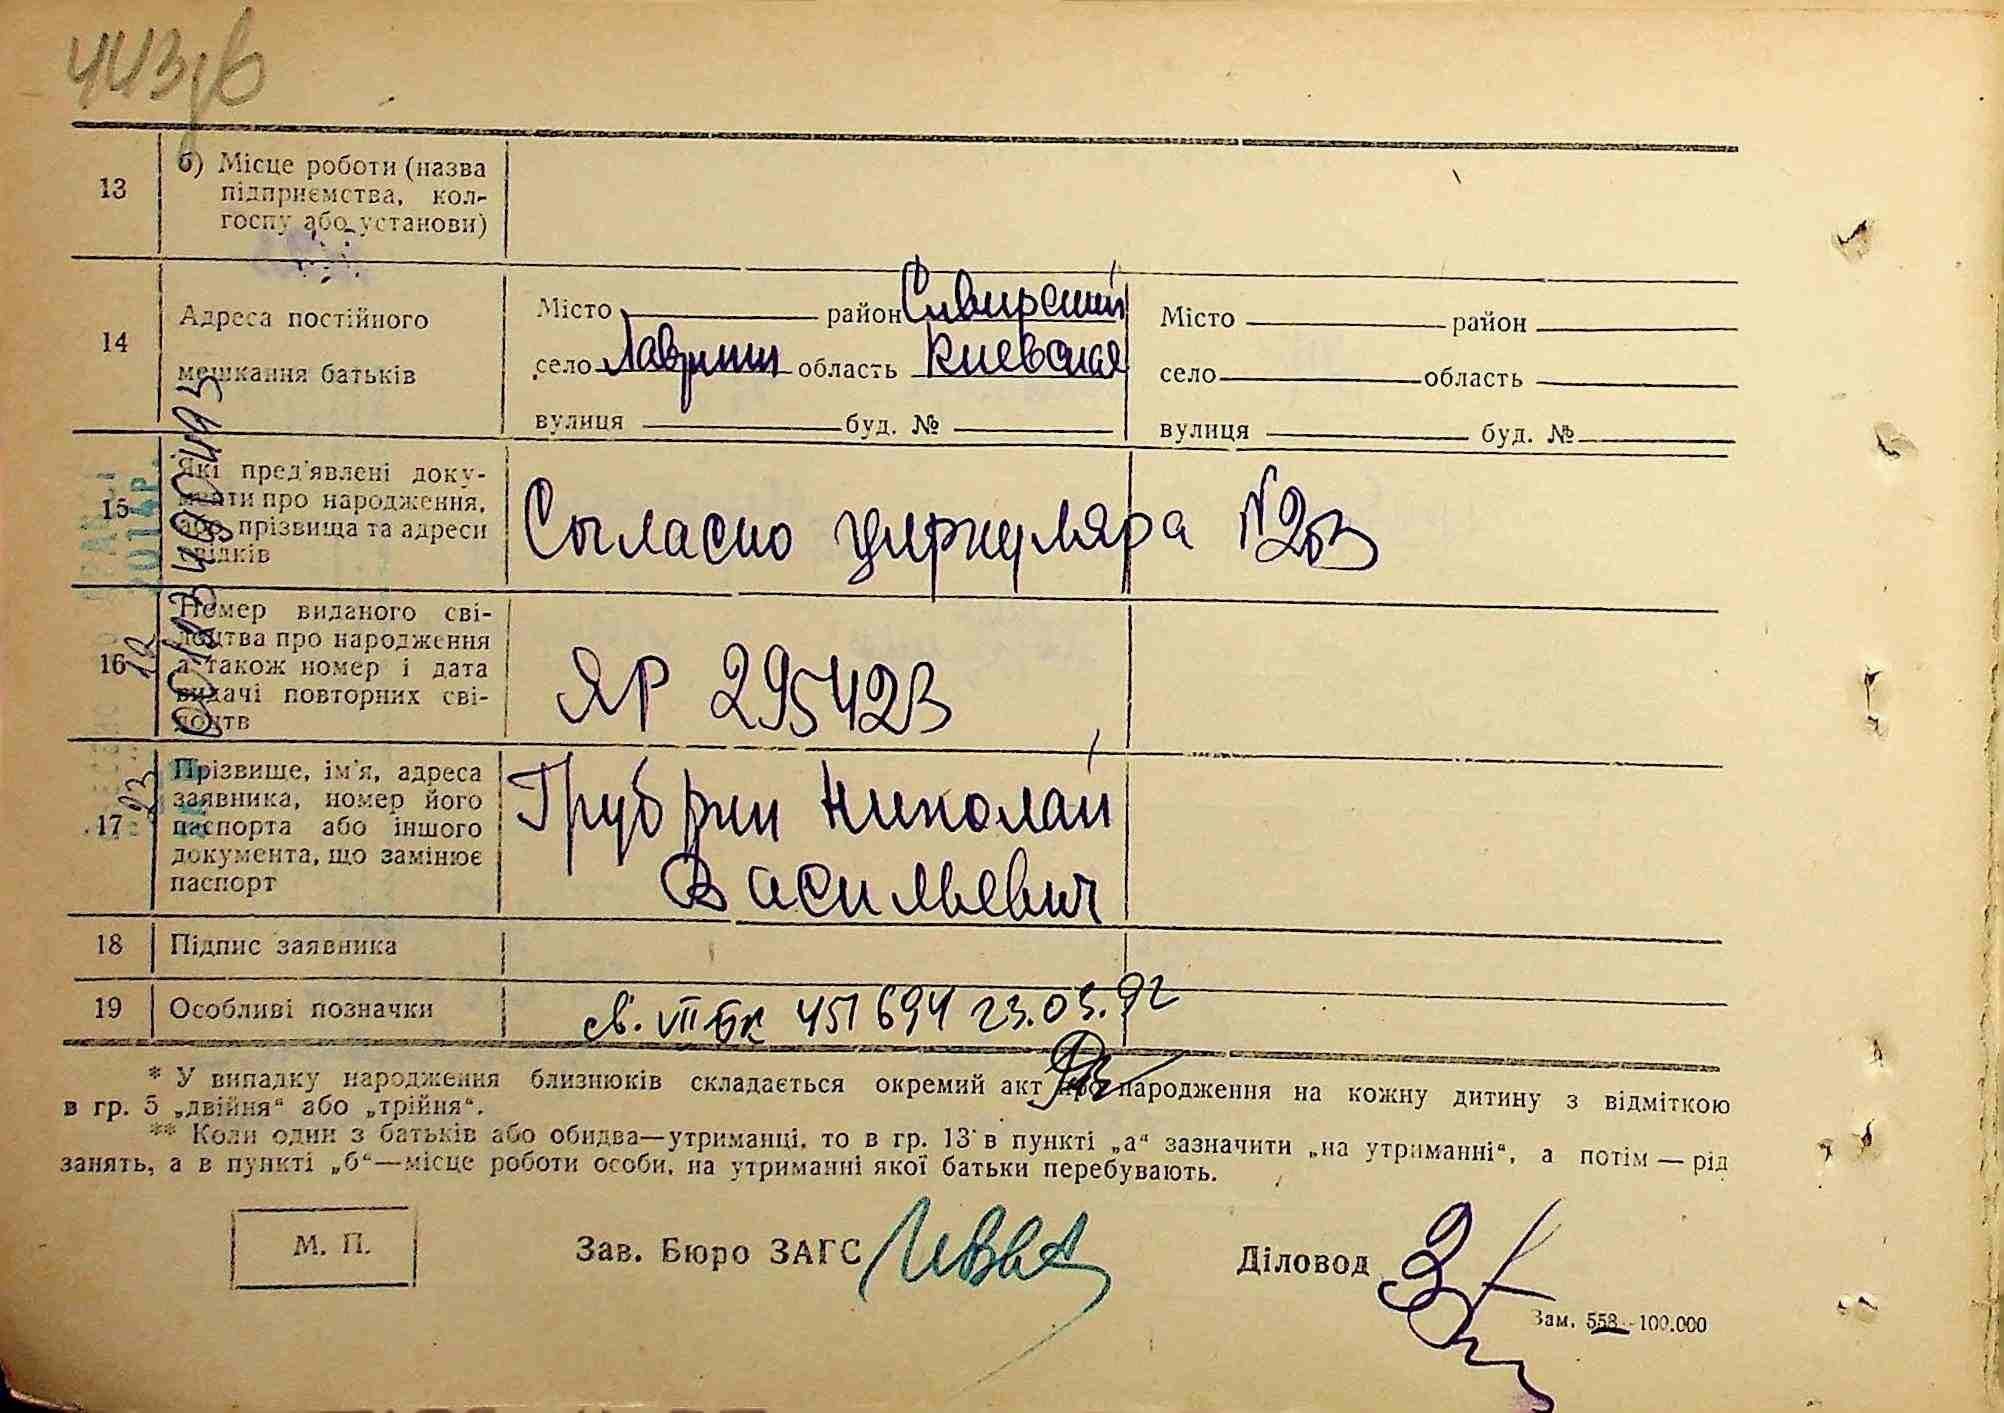 443зв
13
б) Місце роботи (назва
підприємства, кол-
госпу або установи)
14
Адреса постійного
мешкання батьків
Місто район Сквирский
село Лаврики область Киевская
вулиця буд. №
Місто район
село область
вулиця буд. №
15
Які пред'явлені доку-
менти про народження,
або прізвища та адреси
свідків
Согласно циркуляра №203
16
Номер виданого сві-
доцтва про народження
а також номер і дата
видачі повторних сві-
доцтв
ЯР 295423
17
Прізвище, ім'я, адреса
заявника, номер його
паспорта або іншого
документа, що замінює
паспорт
Трубрин Николай
Васильевич
18 Підпис заявника
19 Особливі позначки
св. VII БК 451694 23.03.92
* У випадку народження близнюків складається окремий акт про народження на кожну дитину з відміткою
в гр. 5 „двійня“ або „трійня“.
** Коли один з батьків або обидва—утриманці, то в гр. 13 в пункті „а“ зазначити „на утриманні“, а потім — рід
занять, а в пункті „б“—місце роботи особи, на утриманні якої батьки перебувають.
М. П.
Зав. Бюро ЗАГС
Діловод
Зам. 558—100.000